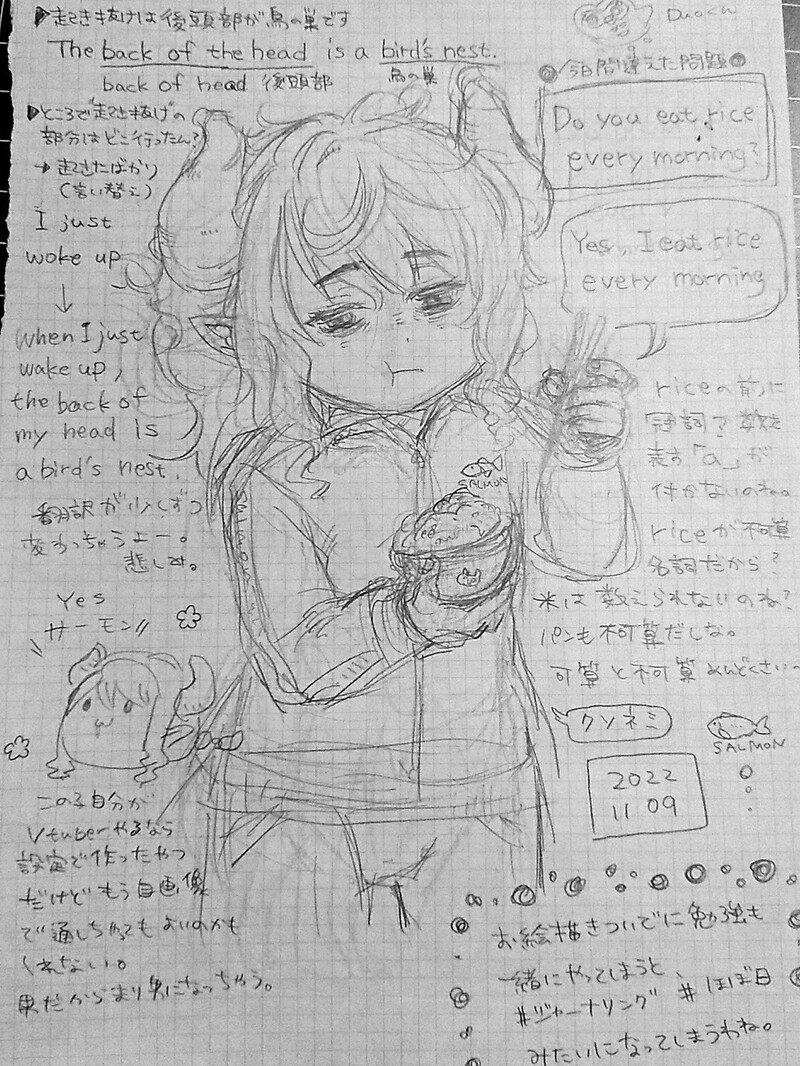 ▶起き抜けは後頭部が鳥の巣です
The back of the head is a bird's nest.
back of head 後頭部
鳥の巣
▶ところで"起き抜け"の
部分はどこ行ったん?
→ 起きたばかり
(言い替え)
I just
woke up
↓
when I just
wake up,
the back of
my head is
a bird's nest.
翻訳が少しずつ
変わっちゃうよー。
悲しみ。
Yes
サーモン!!
この子自分が
Vtuberやるなら
設定で作ったやつ
だけどもう自画像
で通しちゃってもよいのかも
くれない。
今日間違えた問題
Do you eat rice
every morning?
Yes, I eat rice
every morning
riceの前に
冠詞?数を
表す「a」が
付かないのね。
riceが不可算
名詞だから?
米は数えられないのね?
パンも不可算だしな。
可算と不可算めんどくさい〜
クソネミ
SALMON
salmon
SALMON
2022
11 09
お絵描きついでに勉強も
一緒にやってしまうと、
#ジャーナリング #ほぼ日
みたいになってしまうわね。